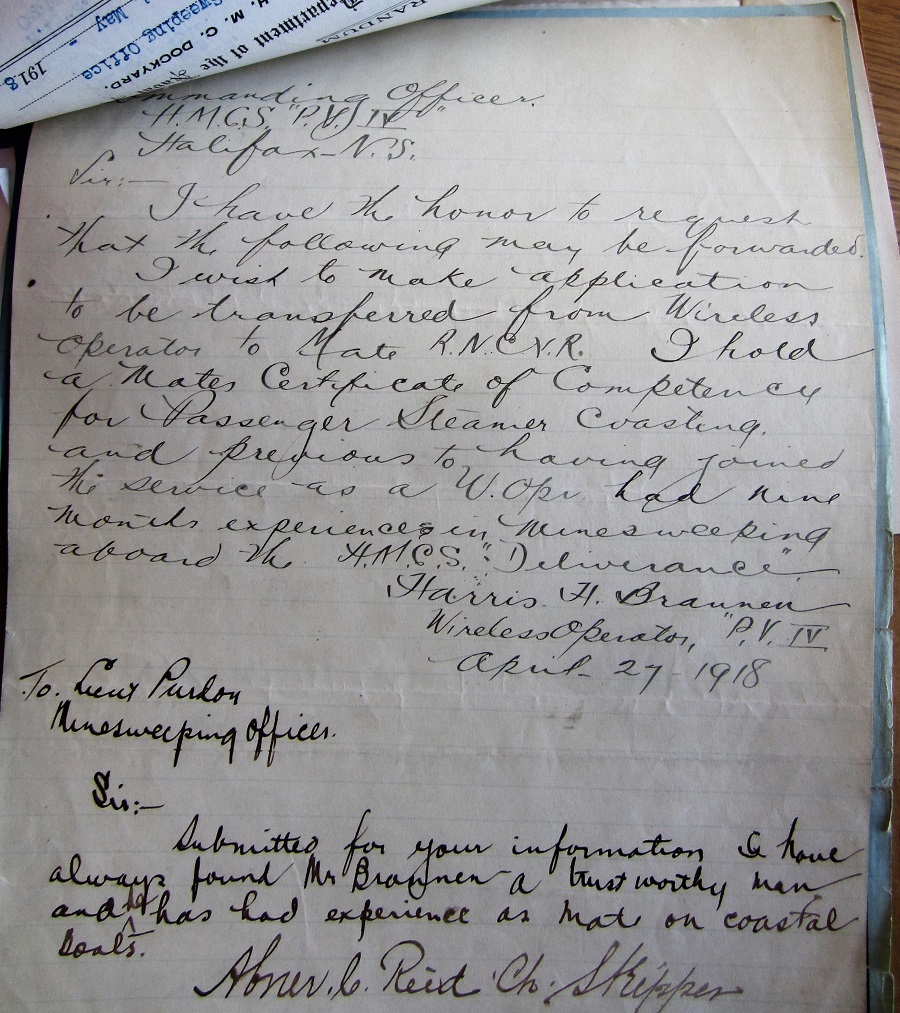 RANDUM
Department of the
H. M. C. DOCKYARD.
Sweeping Office
May - 1918
Commanding Officer.
H.M.C.S. "P.V. IV"
Halifax - N.S.
Sir:-
I have the honor to request
that the following may be forwarded.
I wish to make application
to be transferred from Wireless
Operator to Mate R.N.C.V.R. I hold
a Mates Certificate of Competency
for Passenger Steamer Coasting.
and previous to having joined
the service as a W. Opr. had nine
months experience in Minesweeping
aboard the H.M.C.S. "Deliverance"
Harris. H. Brannen
Wireless Operator, "P.V. IV
April - 27 - 1918
To. Lieut Purdon
Minesweeping Officer.
Sir:-
Submitted for your information I have
always found Mr Brannen a trustworthy man
and he has had experience as Mate on coastal
boats.
Abner. C. Reid Ch. Skipper